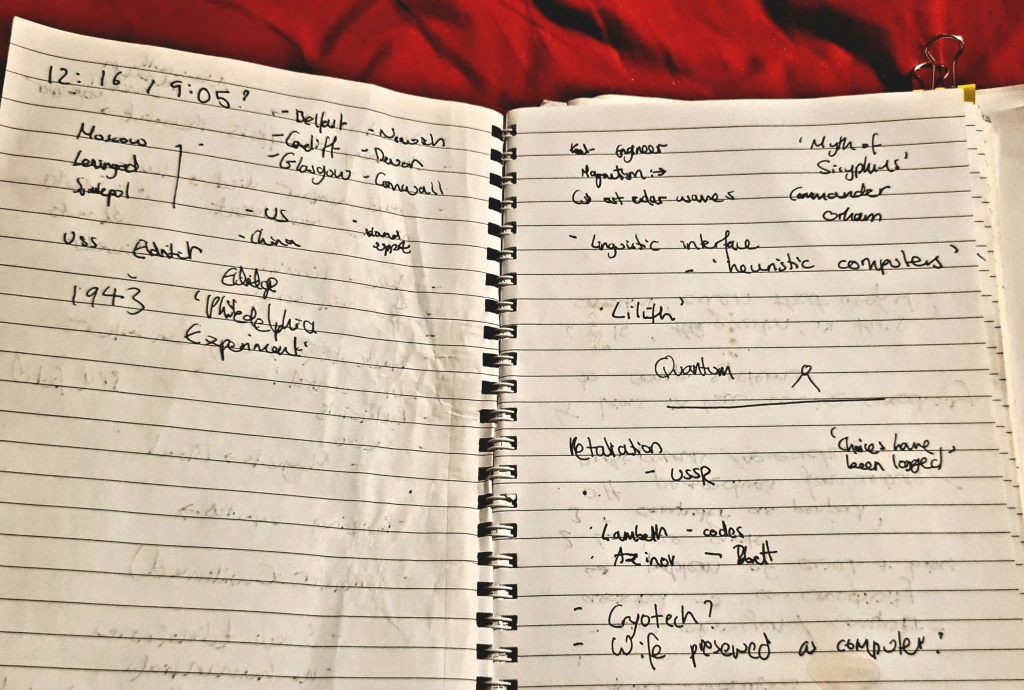 12:16 / 9:05?
- Belfast - Norwich
- Cardiff - Devon
- Glasgow - Cornwall
Moscow
Leningrad
- US
- China
USS Eldritch
Eldridge
1943 'Philedelphia
Experiment'
Engineer
Magnetism:→
waves
'Myth of
Sisyphus'
Commander
Orham
- Linguistic interface
- 'heuristic computers'
· Lilith'
Quantum
Retaliation
- USSR
'Choices have
been logged'
· Lambeth - codes
· Azinov -
- Cryotech?
- Wife preserved as computer?